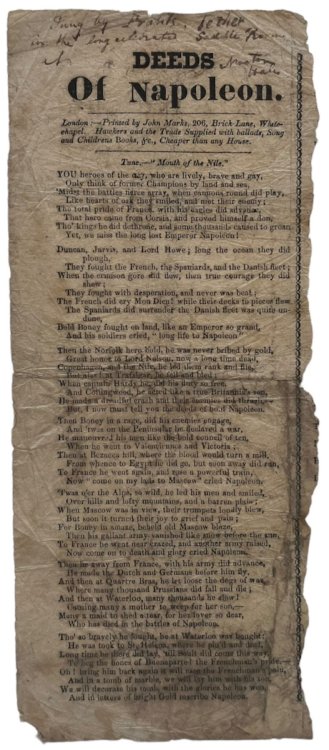 Sung by Frank
in the long celebrated Saddle Room
at
DEEDS
Of Napoleon.
London :—Printed by John Marks, 206, Brick Lane, White-
chapel. Hawkers and the Trade Supplied with ballads, Song
and Childrens Books, &c., Cheaper than any House.
Tune,—"Mouth of the Nile."
YOU heroes of the day, who are lively, brave and gay,
Only think of former Champions by land and sea,
'Midst the battles fierce array, when cannons round did play,
Like hearts of oak they smiled, and met their enemy;
The total pride of France, with his eagles did advance,
That hero came from Corsia, and proved himself a don,
Tho' kings he did dethrone, and some thousands caused to groan
Yet, we miss the long lost Emperor Napoleon!
Duncan, Jarvis, and Lord Howe; long the ocean they did
plough,
They fought the French, the Spaniards, and the Danish fleet;
When the crimson gore did flow, then true courage they did
shew;
They fought with desperation, and never was beat;
The French did cry Mon Dieu! while their decks to pieces flew
The Spaniards did surrender the Danish fleet was quite un-
done,
Bold Boney fought on land, like an Emperor so grand,
And his soldiers cried, "long life to Napoleon"
Then the Norfolk hero bold, he was never bribed by gold,
Great honor to Lord Nelson, now a long time dead,
Copenhagen, and the Nile, he led them rank and file,
But alas! at Trafalgar, he fell and bled;
When captain Hardy he did his duty so free,
And Collingwood, he acted like a true Britannia's son,
He made a dreadful crash and their enemies did thrash
But, I now must tell you the deeds of bold Napoleon.
Then Boney in a rage, did his enemies engage,
And 'twas on the Peninsula he declared a war,
He manouvered his men like the bold council of ten,
When he went to Valenciennes and Victoria;
Then at Bezaces hill, where the blood would turn a mill,
From whence to Egypt he did go, but soon away did run,
To France he went again, and rais'd a powerful train,
Now "come on my lads to Moscow" cried Napoleon.
'Twas o'er the Alps, so wild, he led his men and smiled,
Over hills and lofty mountains, and a barren plain;
When Moscow was in view, their trumpets loudly blew,
But soon it turned their joy to grief and pain;
For Boney in amaze, beheld old Moscow blaze,
Then his gallant army vanished like snow before the sun,
To France he went near crazed, and another army raised,
Now come on to death and glory cried Napoleon.
Then he away from France, with his army did advance,
He made the Dutch and Germans before him fly,
And then at Quartre Bras, he let loose the dogs of war,
Where many thousand Prussians did fall and die;
And then at Waterloo, many thousands he slew!
Causing many a mother to weep for her son,—
Many a maid to shed a tear, for her lover so dear,
Who has died in the battles of Napoleon.
Tho' so bravely he fought, he at Waterloo was bought;
He was took to St. Helena, where he pin'd and died,
Long time he there did lay, till Soult did come this way
To beg the bones of Buonaparte! the Frenchman's pride.—
Oh! bring him back again it will ease the Frenchman's pain,
And in a tomb of marble, we will lay him with his son,
We will decorate his tomb, with the glories he has won,
And in letters of bright Gold inscribe Napoleon.